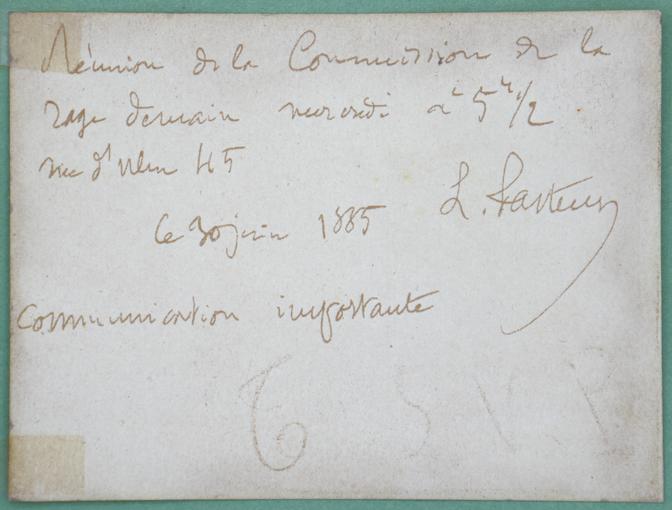 Réunion de la Commission de la
rage demain mercredi à 5 h 1/2
rue d'Ulm 45
L. Pasteur
Ce 30 juin 1885
Communication importante
T S V P